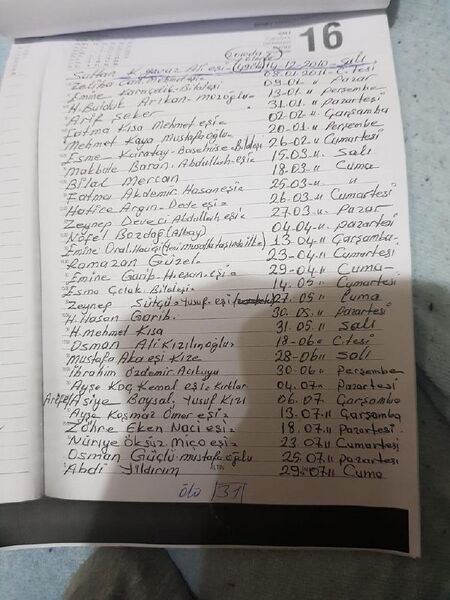 16
SALI
Sultan K. Yavuz Ali eşi 14-12-2010- Salı
Zeliha 08-01-2011- C.tesi
Emine Karaçelik- Bilal eşi 09-01- " Pazar
H. Balduk Arıkan- mozoğlu- 13-01 " Perşembe
Arif Şeker 31.01 " pazartesi
Fatma Kısa Mehmet eşi= 02-02 " Çarşamba
Mehmet Kaya Mustafaoğlu- 20-01- " Perşembe
Esme Karatay- 26-02 " Cumartesi
Makbule Baran. Abdullah eşi= 15.03. " Salı
Bilal Mercan 18-03. " Cuma
Fatma Akdemir Hasan eşi= 25-03 " "
Hatice Argın- Dede eşi= 26-03 " Cumartesi
Zeynep Deveci Abdullah eşi= 27-03. " Pazar
Nefel Bozdoğ (Albay) 04-04- " pazartesi
Emine Oral 13-04 " Çarşamba.
Ramazan Güzel- 23-04 " Cumartesi
Emine Garib- Hasan eşi= 29-04 " Cuma-
Esma Çolak. Bilal eşi= 14.05 " Cumartesi
Zeynep Sütçü= Yusuf eşi 27.05 " Cuma
H. Hasan Garib. 30.05 " Pazartesi
H. mehmet Kısa 31.05 " Salı
Osman Ali Kızılınoğlu= 18-06 " C.tesi
Mustafa Aka eşi Kize- 28-06 " Salı
İbrahim Özdemir Acıkuyu 30-06 " Perşembe
Ayşe Koç Kemal eşi= Kırklar 04.07 " Pazartesi
Asiye Baysal, Yusuf Kızı 06.07 " Çarşamba
Ayşe Koşmaz Ömer eşi= 13.07. " Çarşamba
Zöhre Eken Naci eşi= 18.07 " Pazartesi.
Nuriye Öksüz Miço eşi= 23.07 " Cumartesi
Osman Güçlü- mustafa oğlu 25.07 " Pazartesi
Abdi Yıldırım 29-07 " Cuma
ölü 31